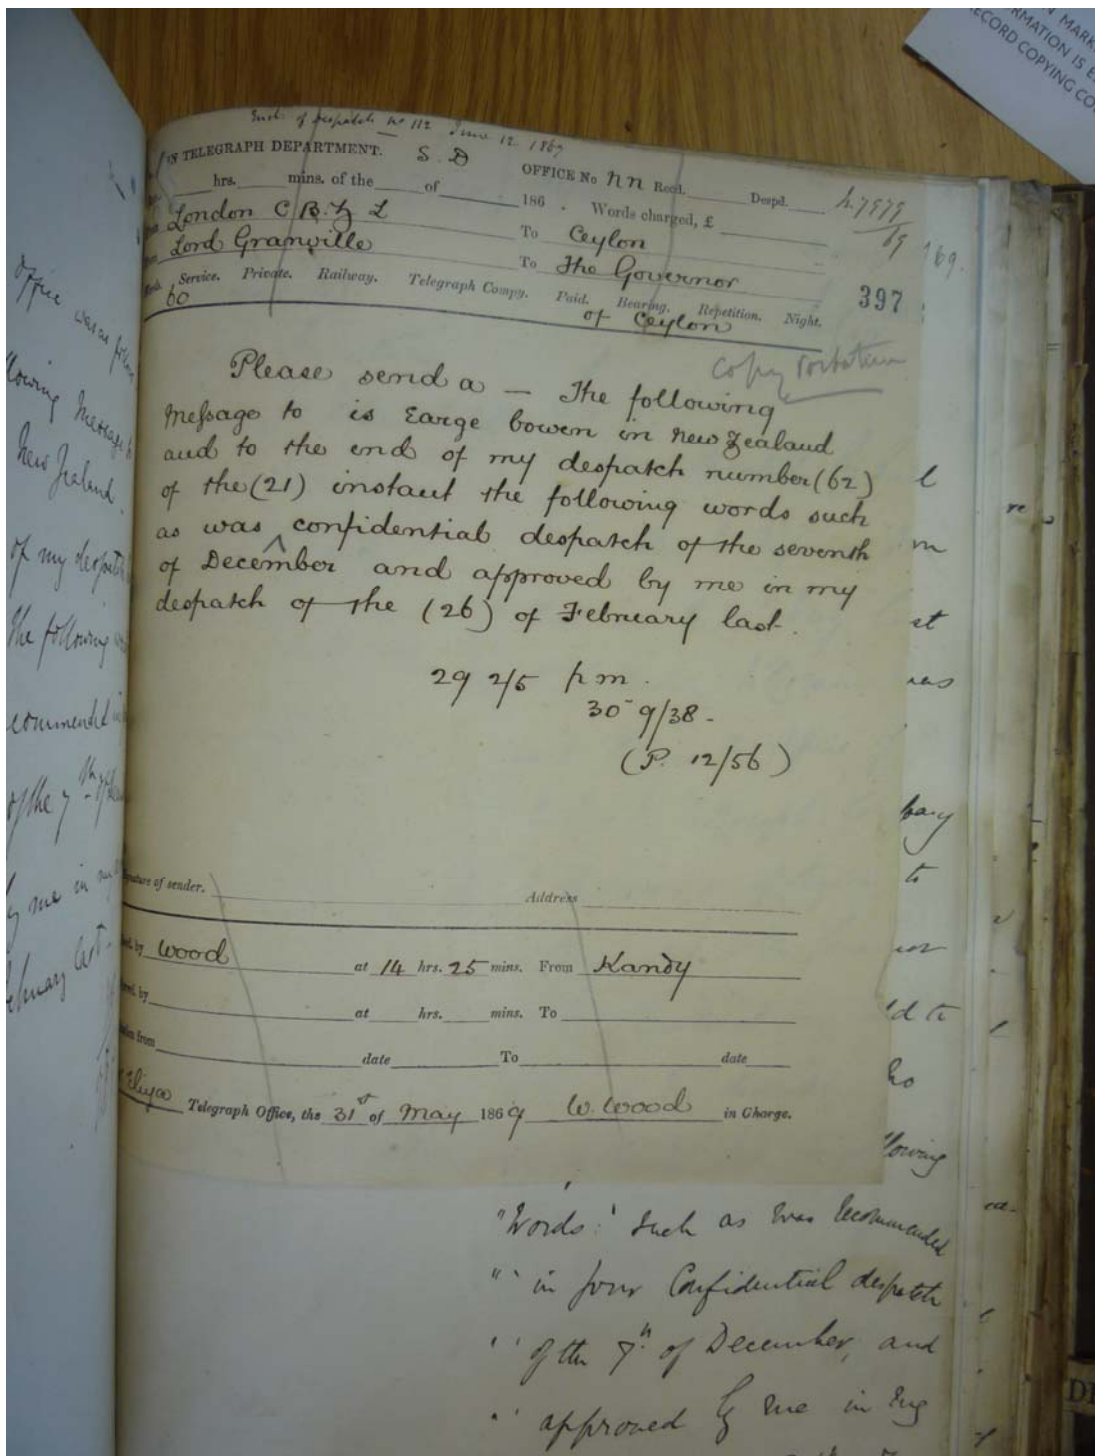 Encl. of Despatch No 112 June 12. 1869
N TELEGRAPH DEPARTMENT. S. D OFFICE No nn Recd. Despd.
hrs. mins. of the of 186 . Words charged, £
h.7979/69
London C B. L To Ceylon
Lord Granville To The Governor
60 Service. Private. Railway. Telegraph Compy. Paid. Bearing. Repetition. Night.
of Ceylon
397
Copy verbatim
Please send a — The following
Message to is Earge bowen in new Zealand
and to the end of my despatch number (62)
of the (21) instant the following words such
as was ^ confidential despatch of the seventh
of December and approved by me in my
despatch of the (26) of February last.
29 2/5 p m.
30 9/38 -
(P. 12/56)
nature of sender. Address
by Wood at 14 hrs. 25 mins. From Kandy
by at hrs. mins. To
from date To date
Eliya Telegraph Office, the 31st of May 1869 W. Wood in Charge.
"Words: 'such as was recommended
"' in your Confidential despatch
"' of the 7th of December, and
"' approved by me in my
office was as follows
lowing Message to
New Zealand.
of my despatch
the following
ecommended in
of the 7th of
by me in my
ebruary last.
69.
l
re
st
to
d to
llowing
N MARK
RMATION IS E
RECORD COPYING CO